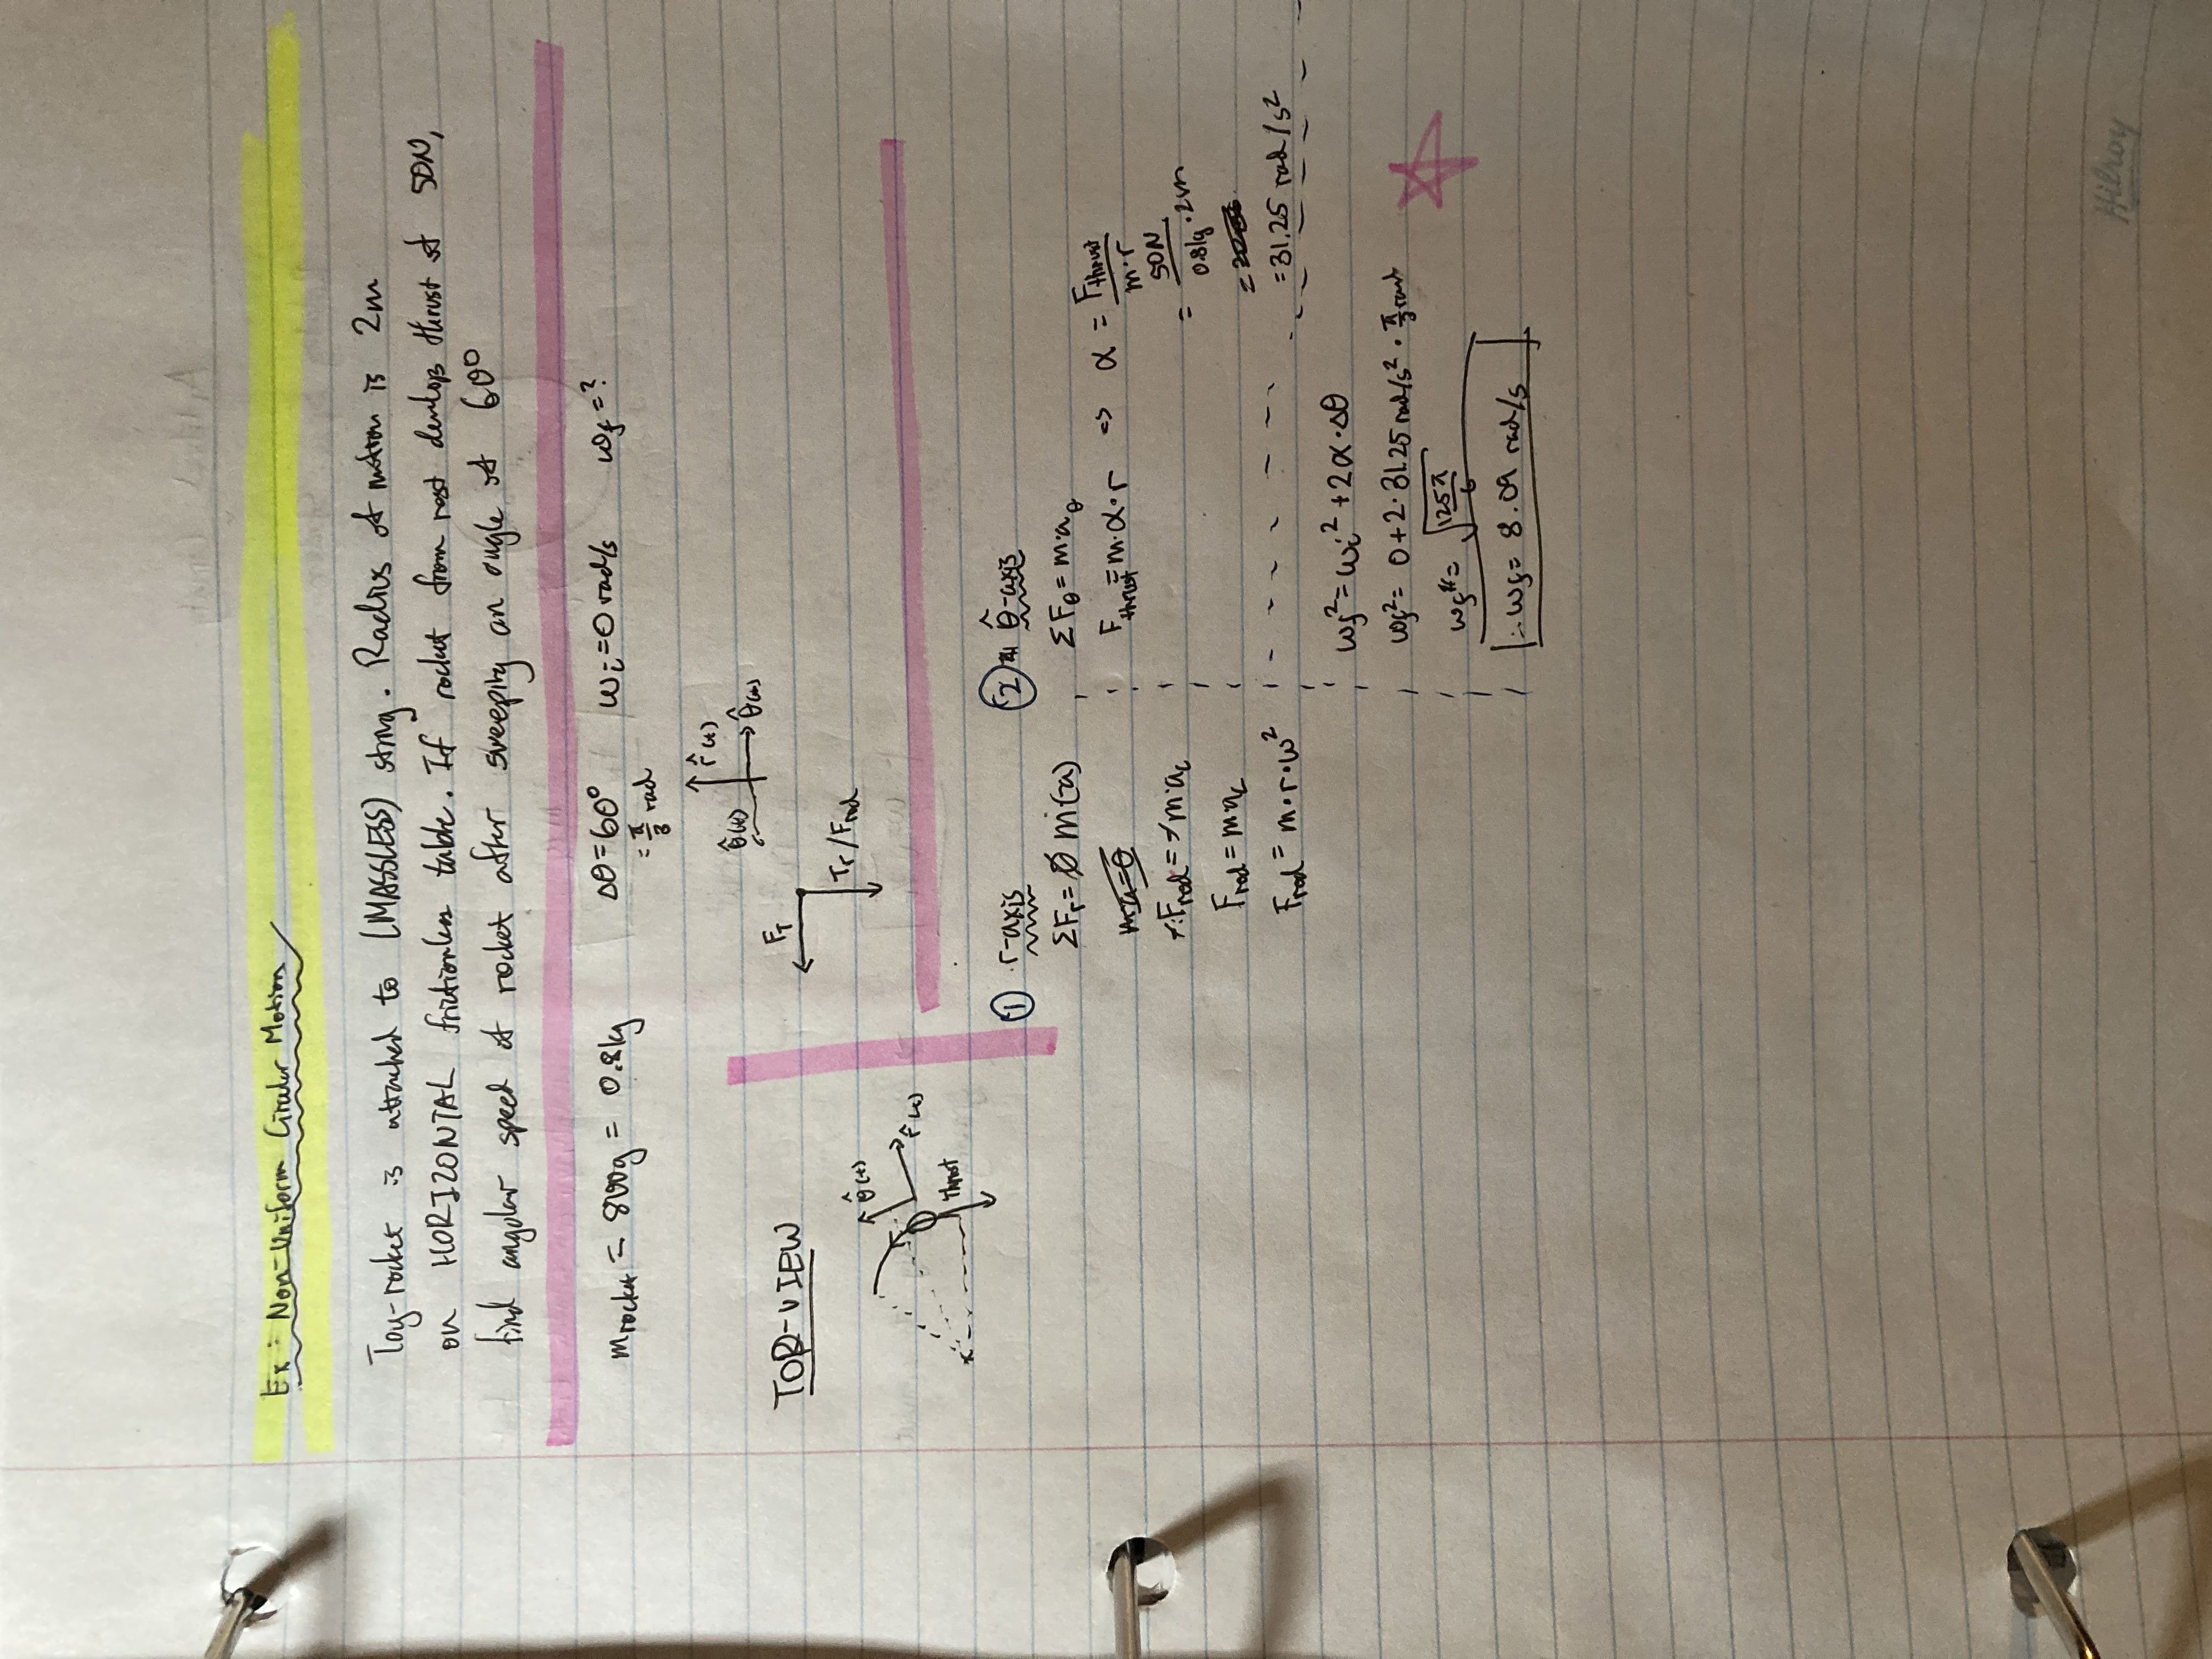 Ex: Non-Uniform Circular Motion
Toy-rocket is attached to (MASSLESS) string. Radius of motion is 2m
on HORIZONTAL frictionless table. If rocket from rest develops thrust of 50N,
find angular speed of rocket after sweeping an angle of 60°
m rocket = 800g = 0.8kg Δθ=60° ωi=0 rad/s ωf=?
= π/3 rad
r̂(t)
θ̂(t) θ̂(t)
TOP-VIEW
FT
Tr/Frod
θ̂(t)
r̂(t)
Thrust
① r-axis
ΣFr= m(-a)
-Frod = -m·ac
Frod = m·ac
Frod = m·r·ω²
② θ̂-axis
ΣFθ = m·aθ
Fthrust = m·α·r => α = Fthrust/m·r
= 50N/0.8kg·2m
= 31.25 rad/s²
ωf² = ωi² + 2α·Δθ
ωf² = 0+2·31.25 rad/s² · π/3 rad
ωf = √125π/6
∴ ωf = 8.09 rad/s
Hilroy